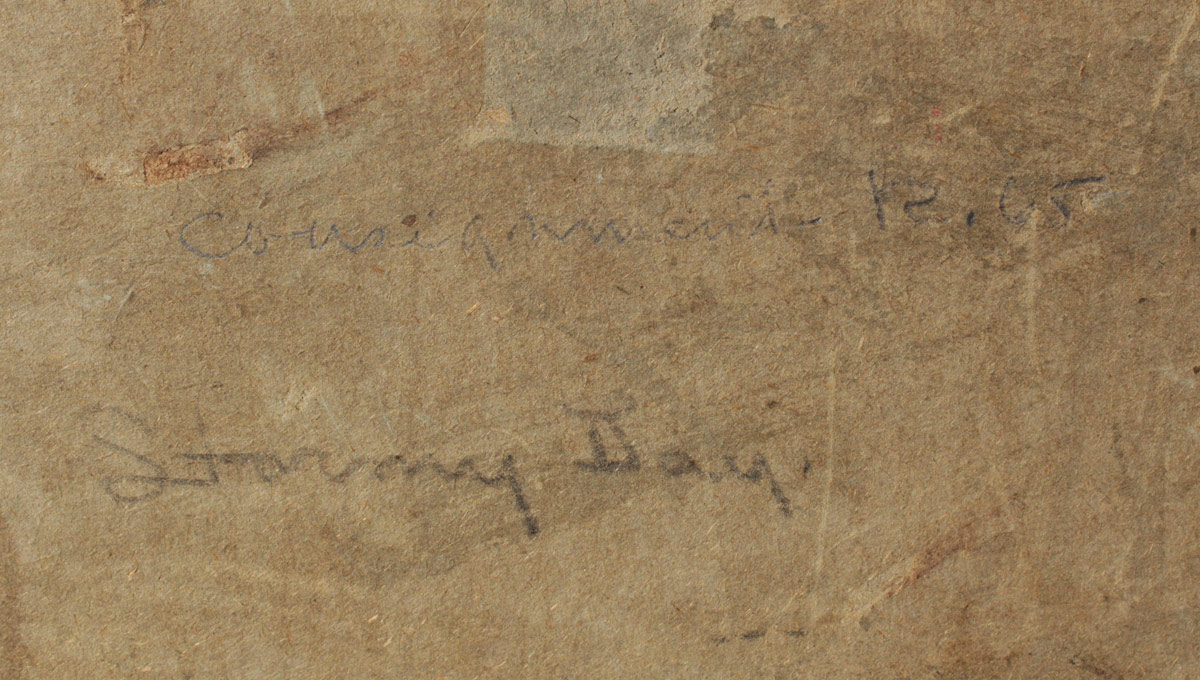 Consignment 12.65
Stormy Day.